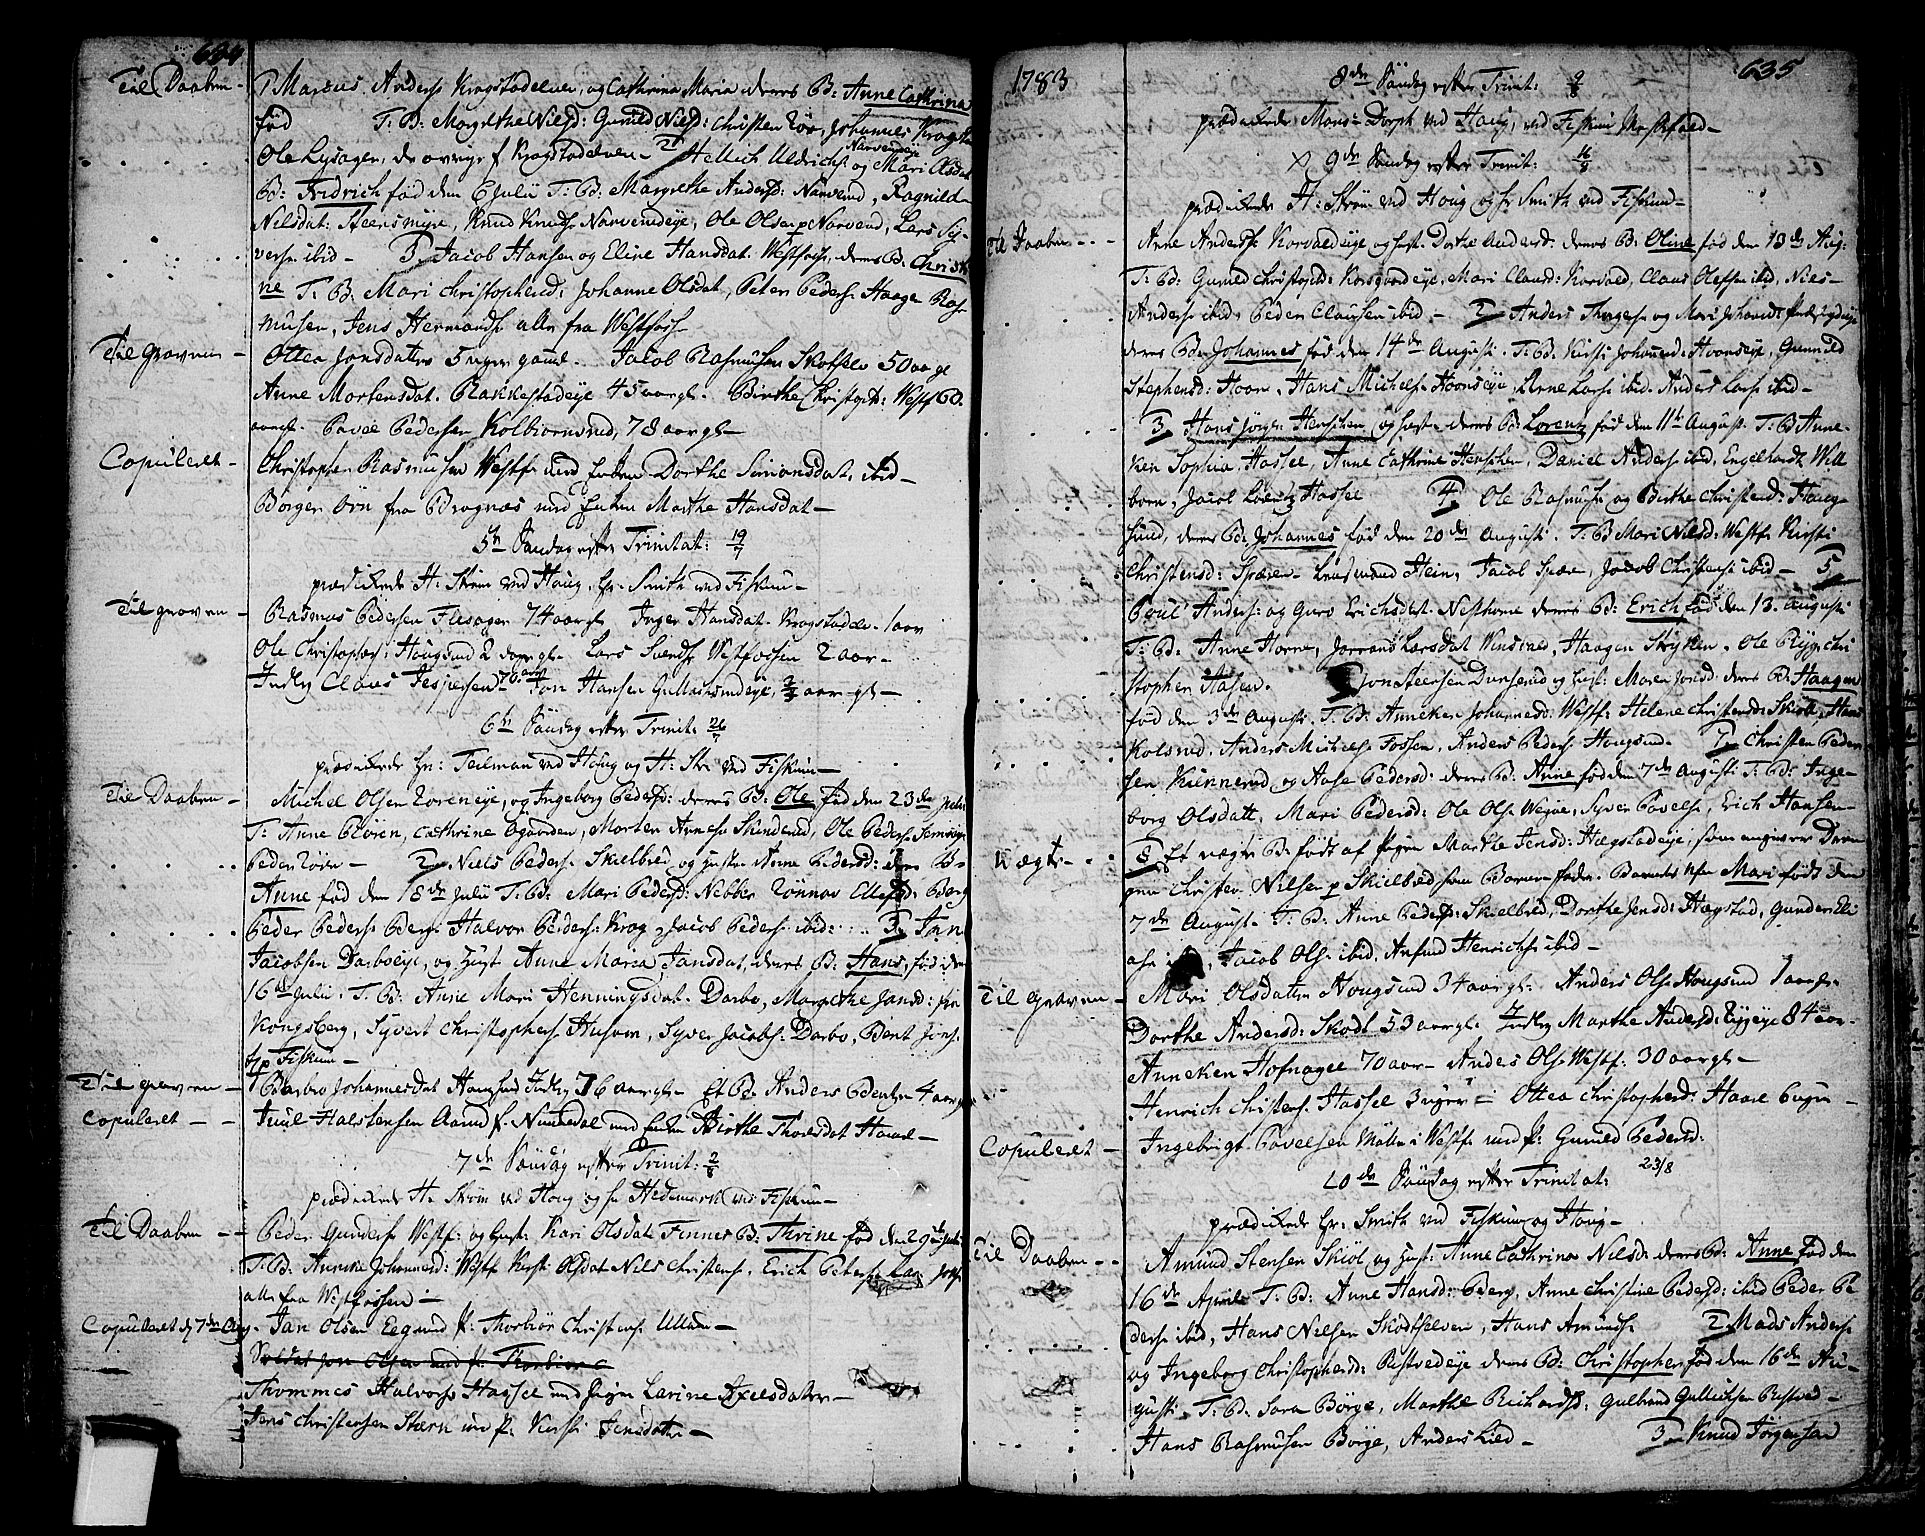 634
Til Daaben - 1 Marcus Anders: Krogstadelven, og Cathrina Maria deres B: Anne Cathrina
fød T: B: Margrethe Nielsd: Gunild Nielsd: Christen Cøv, Johannes Krogst
Ole Lysager, de øvrige f Krogstadelven - 2 Hellich Uldrichs: og Mari Olsdat Narverudeye
B: Fridrich fød dem 6 Julii T: B: Margrethe Andersd: Narverud, Ragnild
Nilsdat: Steersmyre, Knud Knuds: Narverudeye, Ole Olsen p Narverud, Lars Sy-
vers: ibid - 3 Jacob Hansen og Eline Hansdat: Westfoss, deres B: Christi
ne T: B: Mari Christophersd: Johanne Olsdat, Peter Peders: Haagen Ras
musen, Jens Hermands: alle fra Westfoss
Til Graven - Ottea Jonsdatter 5 uger gaml. Jacob Rasmusen Skotselv 50 aar gl
Anne Mortensdat. Rakkestadeye 45 aar gl. Birthe Christophd: Westf 60
aar gl. Povel Pedersen Kolbiornsrud, 78 aar gl -
Copuleret - Christopher Rasmusen Westf med Enken Dorthe Simonsdat, ibid -
Borger Örn fra Bragnæs med Enken Marthe Hansdat -
5te Søndag efter Trinitat: 19/7
prædikede H: Strøm ved Houg, Hr. Smith ved Fiskum -
Til Graven - Rasmus Pedersen Flesager 74 aar gl. Inger Hansdat. Krogstadelv. 1 aar
Ole Christophers: Hougsund 2 aar gl. Lars Svends: Westfossen 2 aar -
Indlg Claus Jespersen 70 aar Jon Hansen Gunnarsrudeye, aar gl -
6te Søndag efter Trinit: 26/7
prædikede Hr: Teilman ved Houg og H: Str: ved Fiskum -
Til Daaben - Michel Olsen Loreneye, og Ingeborg Pedersd: deres B: Ole fød den 23de Julii
T: Anne Cløven, Cathrine Ogaarden, Morten Arnes: Skinderud, Ole Peders: Semseye
Peder Løver - 2 Niels Peders: Skielbred og Hustr. Anne Pedersd: deres B-
Anne fød dem 18de Julii T: B: Mari Pedersd: Nebber Tønnas Ellefsd: Berg
Peder Peders: Berg. Halvor Peders: Krog, Jacob Peders: ibid: 3 Jan
Jacobsen Darboeye, og Hust Anne Maria Jansdat, deres B: Hans, fød den
16de Julii. T: B: Anne Mari Henningsdat. Darbo, Margrethe Jansd: fra
Kongsberg, Syvert Christophers: Husom, Syver Jacobs: Darbo, Bent Jons:
p Fiskum -
Til Graven - Barbro Johannesdat Hougsund Indlg 76 aar gl - Et B: Anders Pedersen 4 aar
Copuleret - - Juul Halstensen Aarud f. Numedal med Enken Birthe Thorsdat Haarel -
7de Søndag efter Trinit: 2/8
prædikede H: Strøm ved Houg og hr Hedemark ved Fiskum -
Til Daaben - Peder Gunders: Westf: og Hust: Kari Olsdat Finnes B: Thrine fød den 29 Julii
T: B: Anneke Johannesd: Westf Kirsti Olsdat Niels Christens: Erich Peters:
alle fra Westfossen -
Copuleret d 7de Aug. Jan Olsen Eegrund P: Thorbiør Christens: Ullern -
Soldat Jon Olsen med P: Thorbiør C
Thommes Halvors: Hassel med Pigen Larine Axelsdatter -
Jens Christensen Stærn med P: Kirsti Jensdatter -
1783
635
8de Søndag efter Trinit: 9/8
prædikede Mons: Dorph ved Houg, ved Fiskum Messefald -
X 9de Søndag efter Trinit: 16/8
prædikede H: Strøm ved Houg og hr Smith ved Fiskum -
Til Daaben - - Arne Anders: Korvaldeye og Hust. Dorthe Andersd. deres B: Oline fød den 13de Aug:
T: B: Gunild Christophd: Korsgardeye, Mari Clausd: Korvald, Claus Olefsen ibid, Niels
Anders: ibid, Peder Clausen ibid - 2 Anders Thoges: og Mari Johansdt
deres B: Johannes fød den 14de Augusti. T: B: Kirsti Johannesd: Hoonseye, Gunnild
Stephensd: Hoen, Hans Michels: Hoonseye, Arne Lars: ibid. Anders Lars: ibid -
3 Hans Jørgen Henschen, og Hust - deres B: Lorentz fød den 11te August. T: B Anne-
ken Sophia Hassel, Anne Cathrine Henschen, Daniel Anders: ibid, Engelhardt Will
born, Jacob Lorntz Hassel 4 Ole Rasmuss: og Birthe Christensd: Houg-
sund, deres B: Johannes fød den 20de Augusti. T: B Mari Nilsd: Westf Kirsti
Christensd: Spæren - Lensmand Hein, Jacob Spær, Jacob Christens: ibid - 5
Poul Anders: og Guro Erichsdat. Nesthorne deres B: Erich fød den 13. Augusti
T: B: Anne Horne, Jorrand Larsdat Vinsrud, Haagen Stryken, Ole Rygg Chri
stopher Aasen. 6 Jon Steersen Dunserud og Hust: Maren Jonsd: deres B: Haagen
fød den 3de Augusti. T: B: Anneken Johannesd: Westf: Helene Christensd: Skiøll, Hans
Kolsrud, Anders Michels: Fossen, Anders Peders: Hougsund. 7 Christen Peder
sen Kunnerud og Aase Pedersd: deres B: Anne fød den 7de Augusti T: B: Inge-
borg Olsdatt, Mari Pedersd: Ole Ols: Wegne, Syver Povels:, Erich Hansen
Uægte - - 8 Et uægte B: født af Pigen Marthe Jensd: Hægstadeye, som angiver Dren
gen Christen Nilsen p Skielbred som Barnefader. Barnets Nfn Mari født den
7de August. T: B: Anne Pedersd: Skielbred, Dorthe Jensd: Hægstad, Gunder Eli
as: ibid, Jacob Ols: ibid, Anfind Henrichs: ibid -
Til Graven - Mari Olsdatter Hougsund 34 aar gl. Anders Ols: Hougsund 1 aar gl
Dorthe Andersd: Skodt 53 aar gl. Indlg Marthe Andersd: Ryggeye 84 aar -
Anneken Hofnagel 70 aar - Anders Ols: Westf: 30 aar gl -
Henrich Christens: Hassel 3 uger = Ottea Christophersd: Haare 6 uger -
Copuleret - Ingebrigt Povelsen Møller i Westf med P: Gunild Pedersd:
10de Søndag efter Trinitat: 23/8
prædikede Hr. Smith ved Fiskum og Houg -
Til Daaben - - Amund Stensen Skiøl og Hust: Anne Cathrina Nilsd: deres B: Anne fød den
16de April T: B: Anne Hansd: Berg, Anne Christine Pedersd: ibid Peder Pe
ders: ibid, Hans Nilsen Skodtselven, Hans Amunds: 2 Mads Anders:
og Ingeborg Christophersd: Ristvedeye deres B: Christopher fød den 16de Au-
gusti. T: B. Sara Børge, Marthe Richardsd: Gulbrand Gullichsen Ristved -
Hans Rasmusen Børge, Anders Lied - 3 Knud Jörgensen